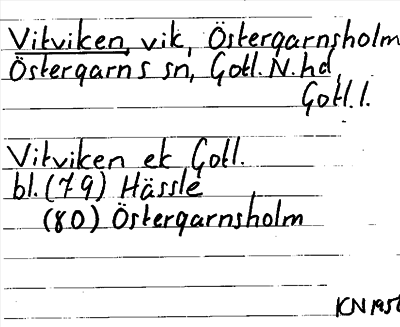 Vitviken, vik, Östergarnsholm
Östergarns sn, Gotl. N. hd,
Gotl. l.
Vitviken ek Gotl.
bl. (79) Hässle
(80) Östergarnsholm
KN 1956